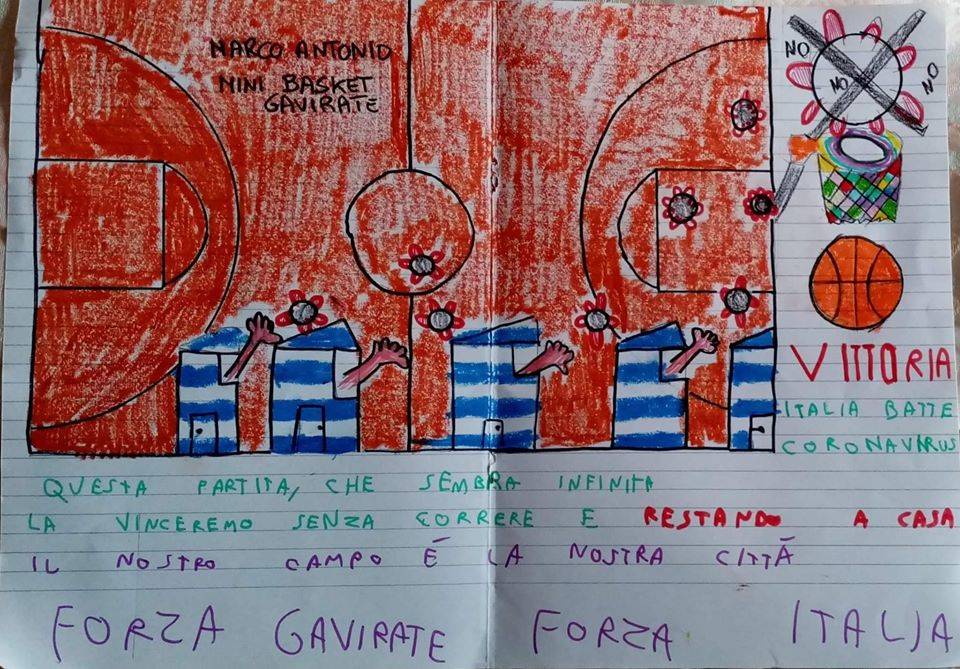 MARCO ANTONIO
MINI BASKET
GAVIRATE
NO
NO
NO
VITTORIA
ITALIA BATTE
CORONAVIRUS
QUESTA PARTITA, CHE SEMBRA INFINITA
LA VINCEREMO SENZA CORRERE E RESTANDO A CASA
IL NOSTRO CAMPO È LA NOSTRA CITTÀ
FORZA GAVIRATE FORZA ITALIA